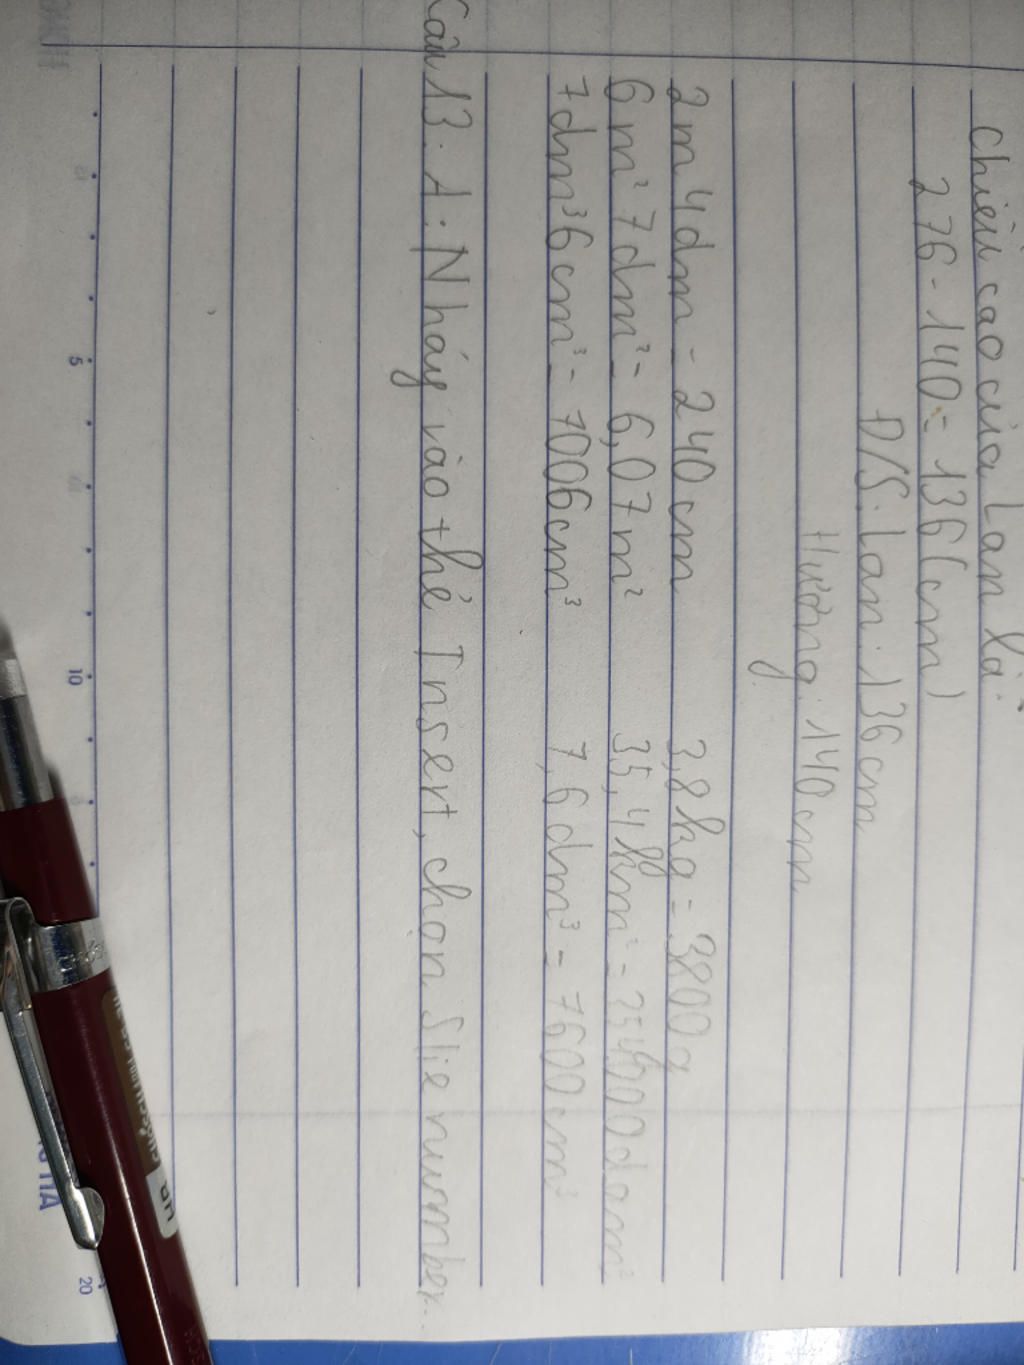 Chiều cao của Lan là:
276 - 140 = 136 (cm)
Đ/S: Lan: 136 cm
Hường: 140 cm
2m 4dm = 240 cm 3,8 kg = 3800 g
6m² 7dm² = 6,07 m² 35,4 km² = 354000 dam²
7dm³ 6cm³ = 7006 cm³ 7,6 dm³ = 7600 cm³
Câu 13. A: Nháy vào thẻ Insert, chọn Slie number.
5 10 20